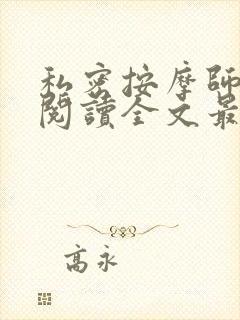 私密按摩師
閱讀全文最
高永